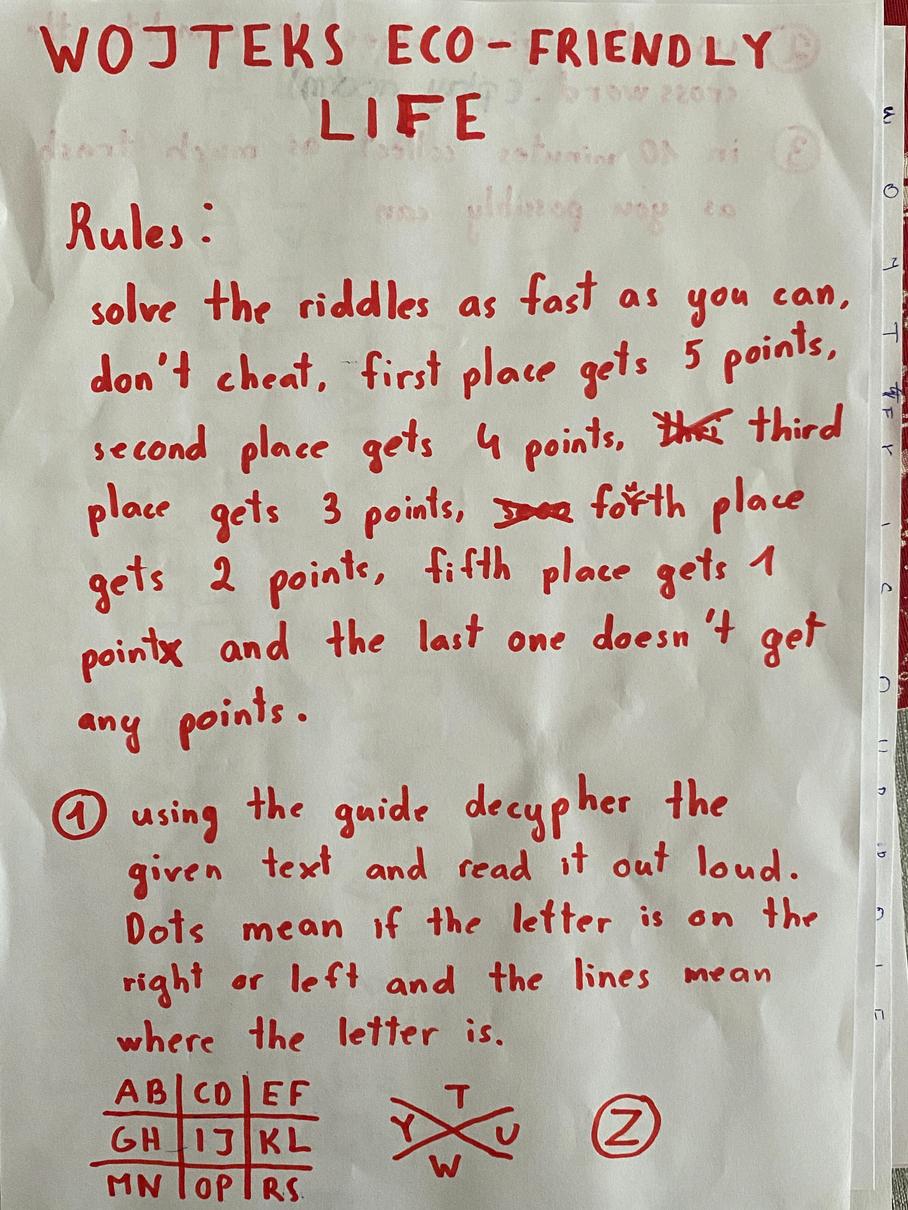 WOJTEKS ECO-FRIENDLY
LIFE
Rules:
solve the riddles as fast as you can,
don't cheat, first place gets 5 points,
second place gets 4 points, third
place gets 3 points, forth place
gets 2 points, fifth place gets 1
point and the last one doesn't get
any points.
1 using the guide decypher the
given text and read it out loud.
Dots mean if the letter is on the
right or left and the lines mean
where the letter is.
AB CD EF
GH IJ KL
MN OP RS
T
Y U
W
Z